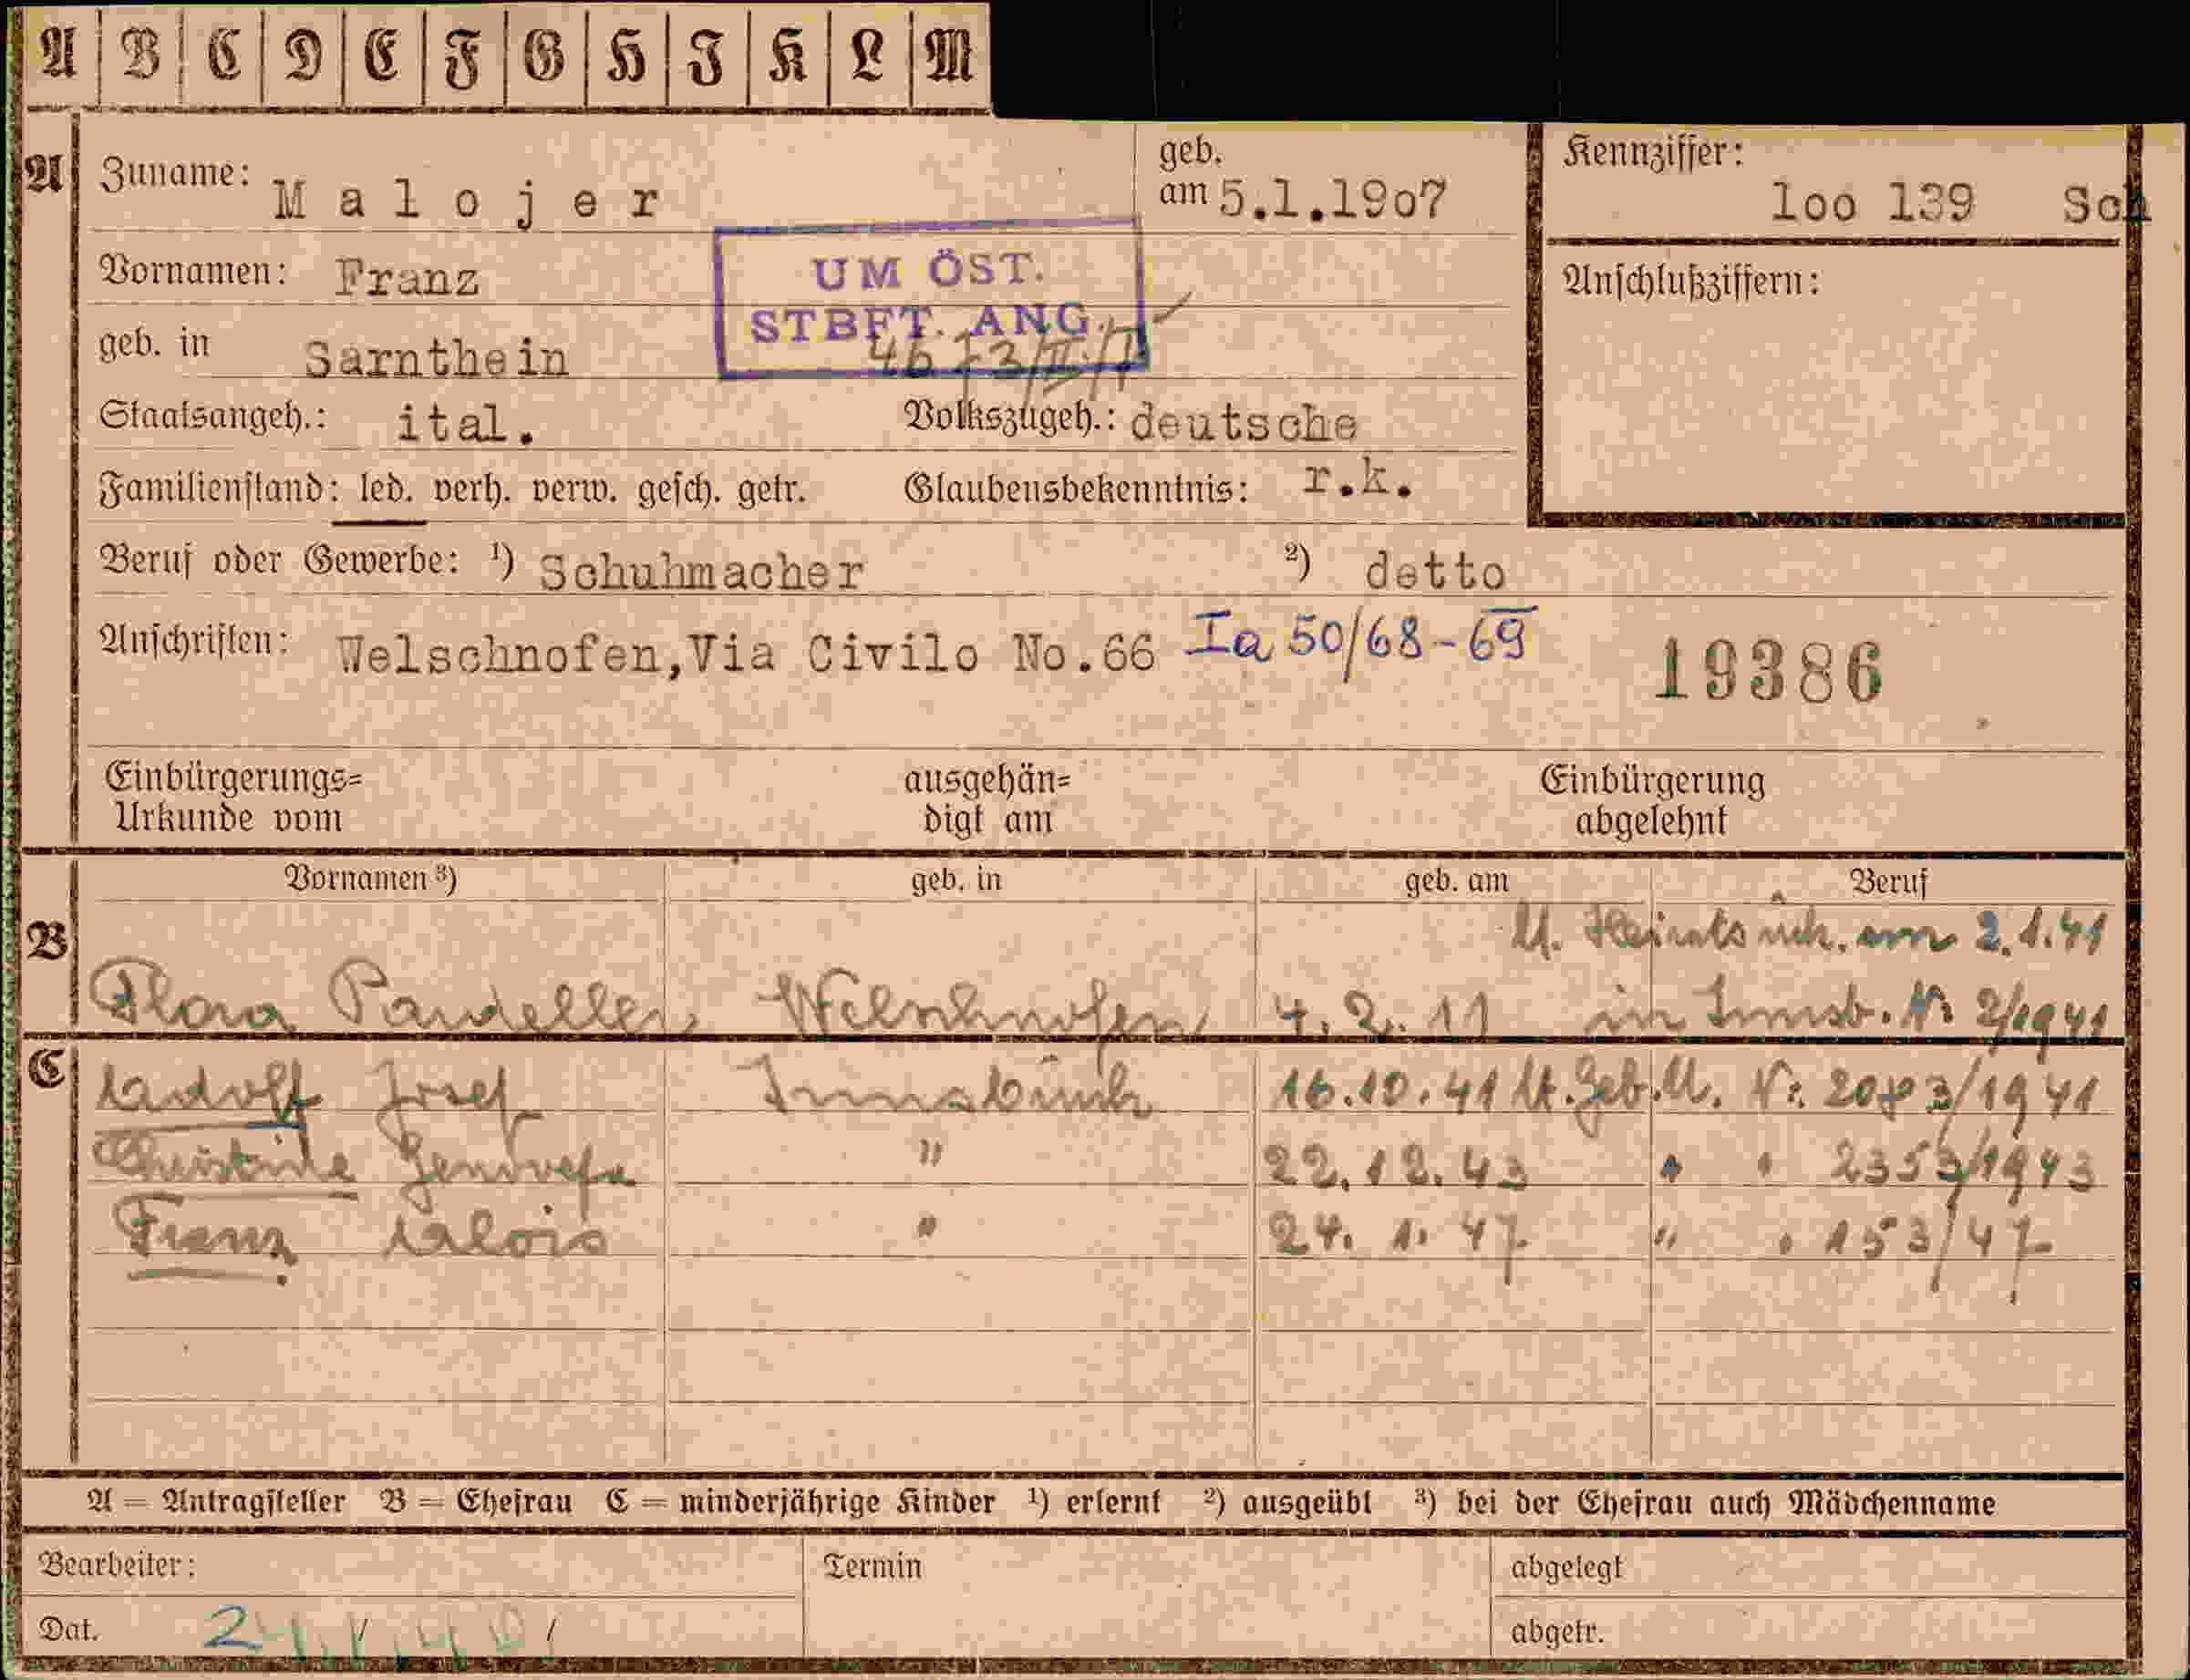 A B C D E F G H I K L M
A Zuname: Malojer geb. am 5.1.1907 Kennziffer: 100 139 Sch
Vornamen: Franz UM ÖST. Anschlußziffern:
STBFT. ANG.
geb. in Sarnthein
Staatsangeh.: ital. Volkszugeh.: deutsche
Familienstand: led. verh. verw. gesch. getr. Glaubensbekenntnis: r.k.
Beruf oder Gewerbe: ¹) Schuhmacher ²) detto
Anschriften: Welschnofen,Via Civilo No.66 Ia 50/68-69 19386
Einbürgerungs= ausgehän= Einbürgerung
Urkunde vom digt am abgelehnt
Vornamen ³) geb. in geb. am Beruf
B lt. Heiratsurk. vom 2.1.41
Flora Pardeller Welschnofen 4.2.11 in Innsb. Nr 2/1941
C Adolf Josef Innsbruck 16.10.41 lt.Geb.U. Nr. /1941
Christine Genovefa " 22.12.43 " " 2353/1943
Franz Alois " 24.1.47 " " 153/47
A = Antragsteller B = Ehefrau C = minderjährige Kinder ¹) erlernt ²) ausgeübt ³) bei der Ehefrau auch Mädchenname
Bearbeiter: Termin abgelegt
Dat. abgetr.